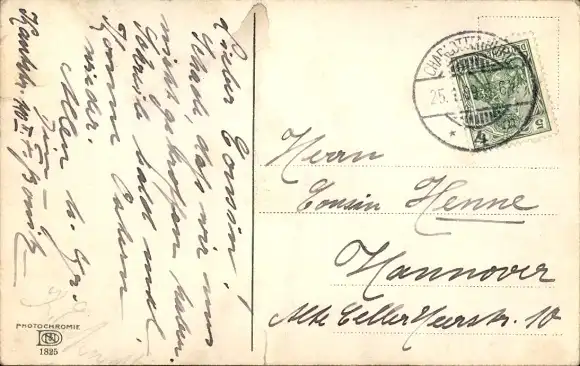 Lieber Cousin!
Schade, daß wir uns
nicht getroffen haben.
Schreibe bald mal
Komme Ostern
wieder.
Allen b. Gr.
Kantstr.
PHOTOCHROMIE
1825
CHARLOTTENBURG
25.1
5
Herrn
Cousin Henne
Hannover
Alte Celler Heerstr. 10